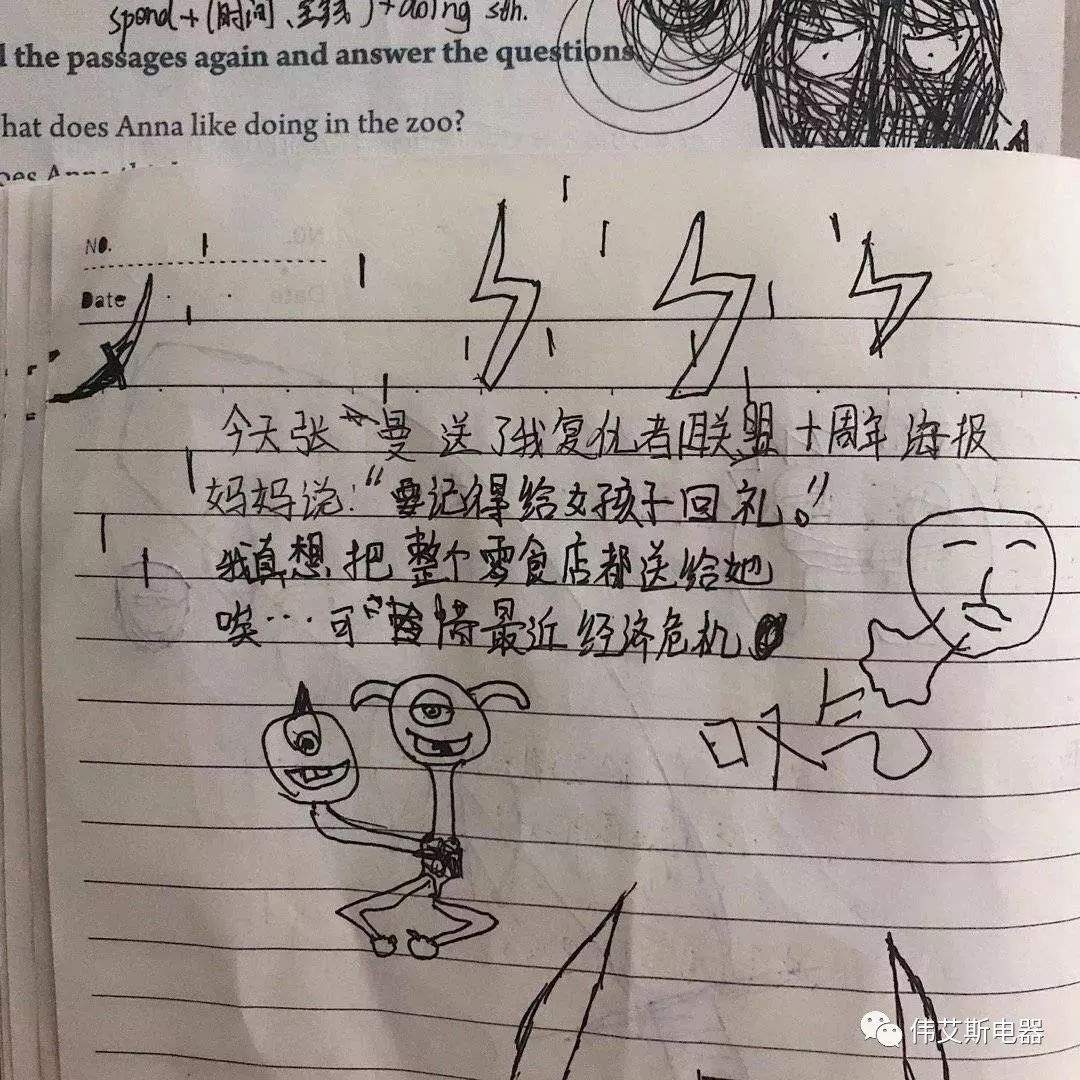 spend + (时间、金钱) + doing sth.
d the passages again and answer the questions.
hat does Anna like doing in the zoo?
oes Anna
NO.
Date
今天张曼送了我复仇者联盟十周年海报
妈妈说:“要记得给女孩子回礼。”
我真想把整个零食店都送给她
唉…可惜最近经济危机
哎
伟艾斯电器